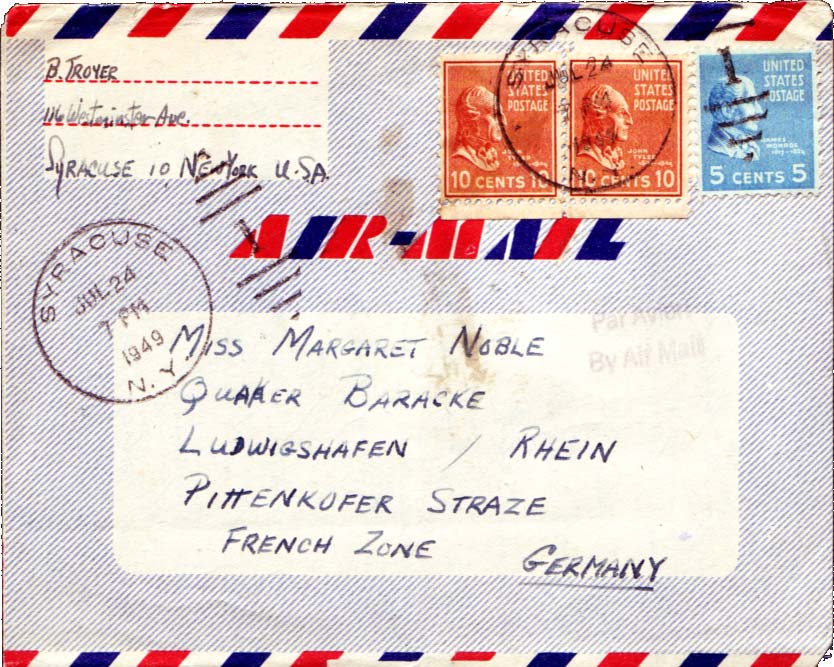 B. TROYER
116 Westminster Ave.
SYRACUSE 10 NEW YORK U.S.A.
SYRACUSE
JUL 24
N.Y.
UNITED
STATES
POSTAGE
JOHN
TYLER
10 CENTS 10
UNITED
STATES
POSTAGE
JOHN
TYLER
10 CENTS 10
1
UNITED
STATES
POSTAGE
JAMES
MONROE
5 CENTS 5
AIR-MAIL
1
SYRACUSE
JUL 24
7 PM
1949
N.Y.
Par Avion
By Air Mail
MISS MARGARET NOBLE
QUAKER BARACKE
LUDWIGSHAFEN / RHEIN
PITTENKOFER STRAZE
FRENCH ZONE
GERMANY